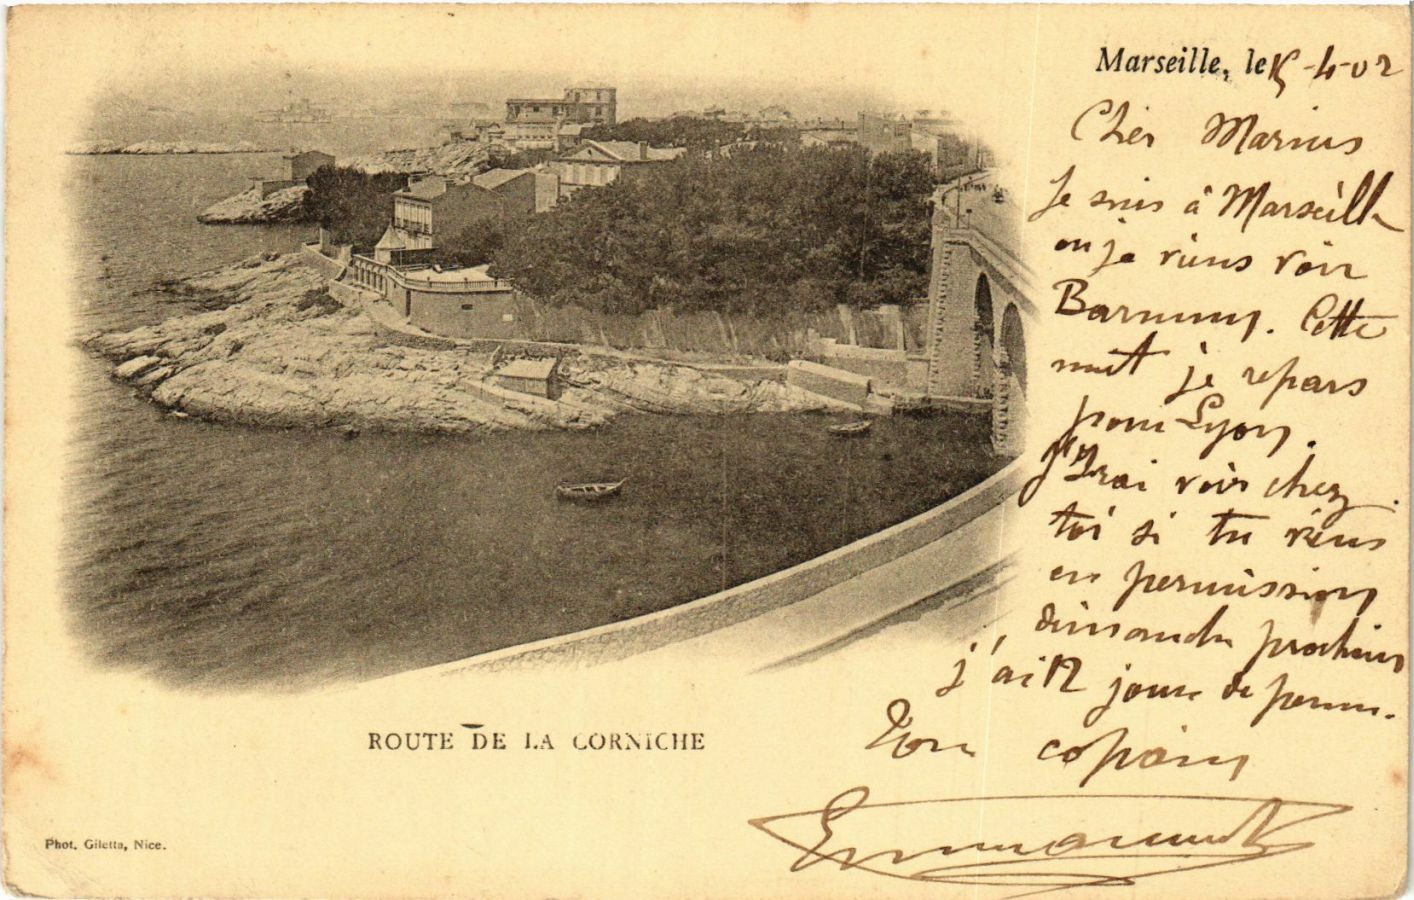 Marseille, le 15-4-02
Cher Marius
Je suis à Marseille
ou je viens voir
Barnum. Cette
nuit je repars
pour Lyon.
J'Irai voir chez
toi si tu viens
en permission
dimanche prochain
j'ai 12 jours de perm.
Ton copain
ROUTE DE LA CORNICHE
Phot. Giletta, Nice.